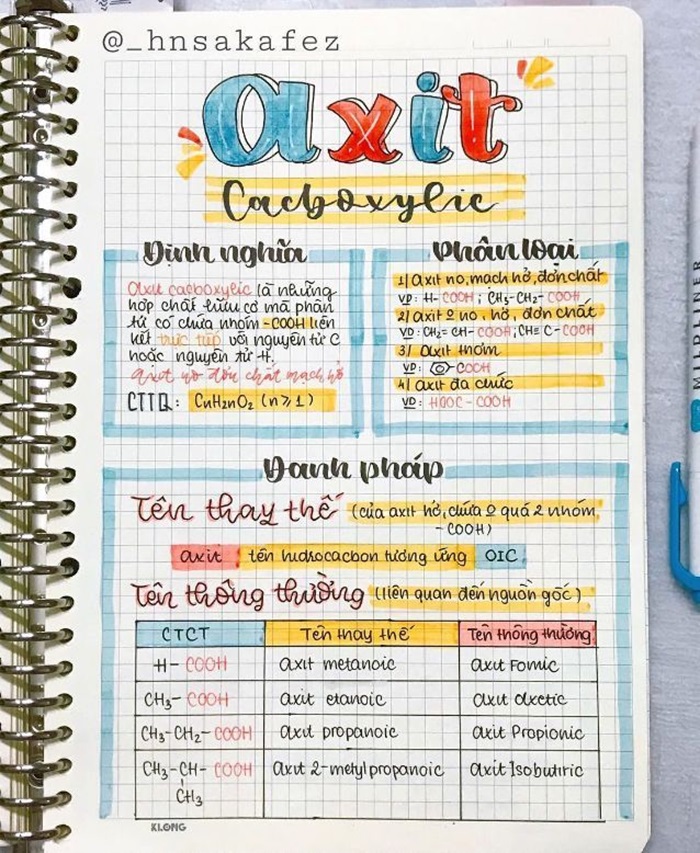 @_hnsakafez
axit
Cacboxylic
Định nghĩa
axit cacboxylic là những
hợp chất hữu cơ mà phân
tử có chứa nhóm -COOH liên
kết trực tiếp với nguyên tử C
hoặc nguyên tử H.
axit no đơn chất mạch hở
CTTQ: CnH2nO2 (n≥1)
Phân loại
1) axit no, mạch hở, đơn chất
VD: H-COOH; CH3-CH2-COOH
2) axit o no, hở, đơn chất
VD: CH2=CH-COOH; CH≡C-COOH
3) axit thơm
VD: -COOH
4) axit đa chức
VD: HOOC-COOH
Danh pháp
Tên thay thế (của axit hở, chứa o quá 2 nhóm,
-COOH)
axit tên hidrocacbon tương ứng OIC
Tên thông thường (liên quan đến nguồn gốc)
CTCT Tên thay thế Tên thông thường
H-COOH axit metanoic axit Fomic
CH3-COOH axit etanoic axit axetic
CH3-CH2-COOH axit propanoic axit Propionic
CH3-CH-COOH axit 2-metylpropanoic axit Isobutiric
CH3
KLONG